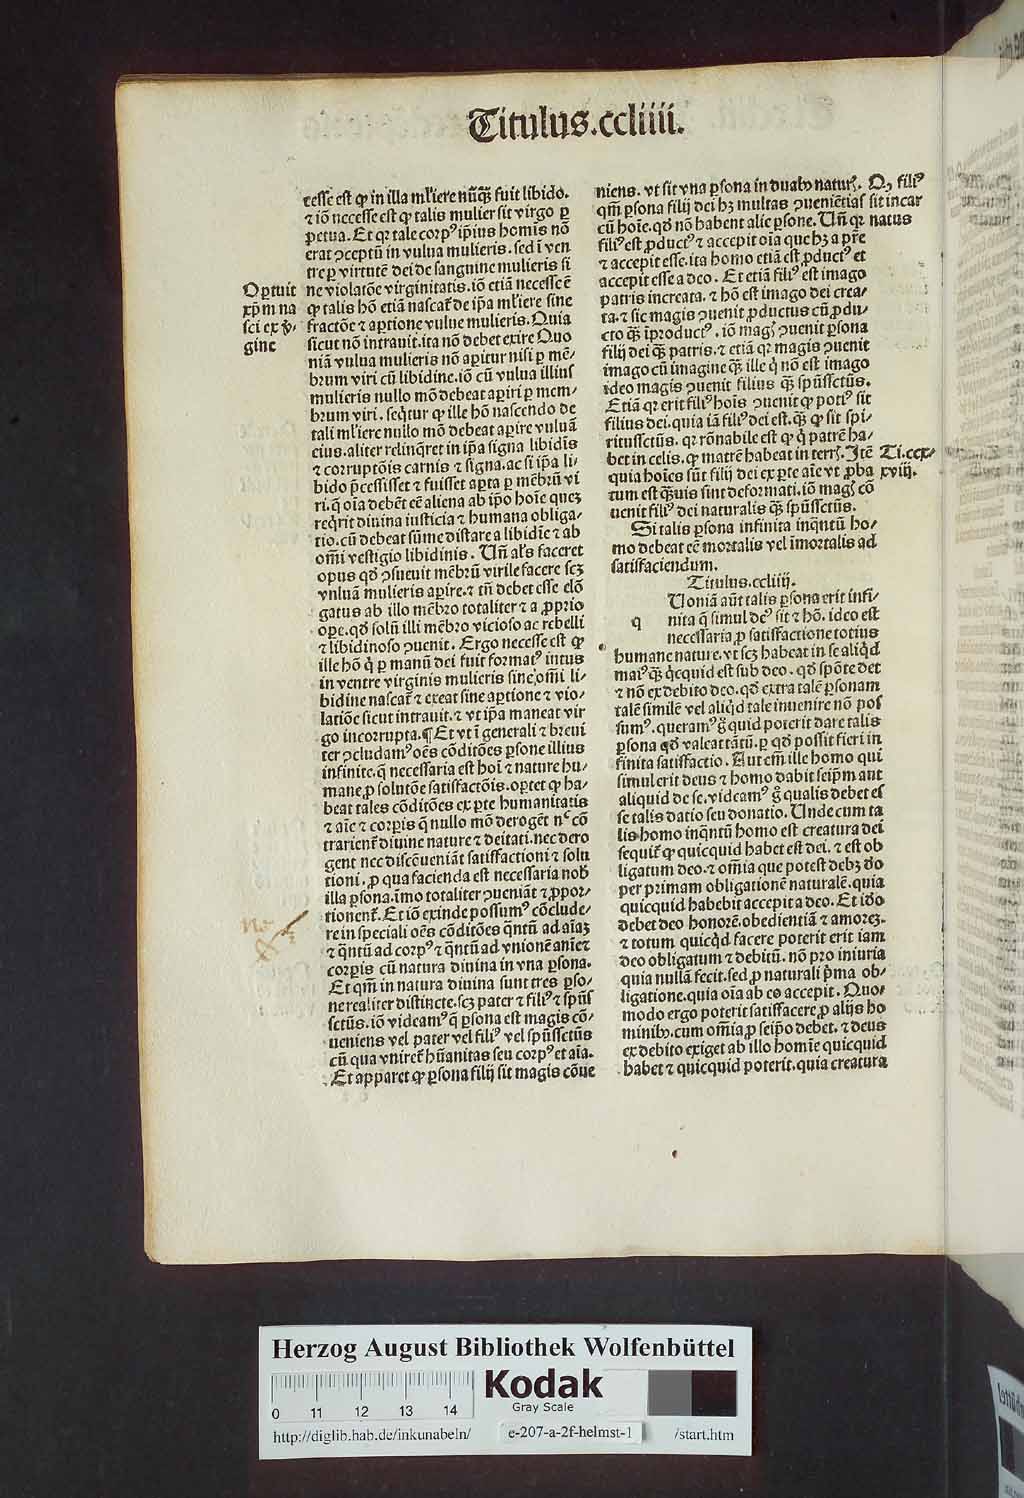 Titulus.ccliiii.
cesse est ꝙ in illa mľiere nũq̃ȝ fuit libido.
⁊ iõ necesse est ꝙ talis mulier sit virgo ꝑ
petua. Et qꝛ tale corpꝰ ip̃ius homis nõ
erat ɔceptũ in vulua mulieris. sed ĩ ven
tre ꝑ virtutẽ dei de sanguine mulieris si
ne violatõe virginitatis. iõ etiã necesse ẽ
ꝙ talis hõ etiã nascat᷑ de ip̃a mľiere sine
fractõe ⁊ aꝑtione vulue mulieris. Quia
sicut nõ intrauit. ita nõ debet exire Quo
niã vulua mulieris nõ aꝑitur nisi ꝑ mẽ⸗
brum viri cũ libidine. iõ cũ vulua illius
mulieris nullo mõ debeat aꝑiri ꝑ mem⸗
brum viri. seq̃tur ꝙ ille hõ nascendo de
tali mľiere nullo mõ debeat aꝑire vuluã
eius. aliter relinq̃ret in ip̃a signa libidĩs
⁊ corruptõis carnis ⁊ signa. ac si ip̃a li⸗
bido p̃cessisset ⁊ fuisset aꝑta ꝑ mẽbrũ vi
ri. q̃ oĩa debẽt eẽ aliena ab ip̃o hoĩe queȝ
req̃rit diuina iusticia ⁊ humana obliga⸗
tio. cũ debeat sũme distare a libidĩe ⁊ ab
om̃i vestigio libidinis. Uñ al's faceret
opus qd̃ ɔsueuit mẽbrũ virile facere scȝ
vuluã mulieris aꝑire. ⁊ tñ debet esse elõ
gatus ab illo mẽbro totaliter ⁊ a ꝓprio
oꝑe. qd̃ solũ illi mẽbro vicioso ac rebelli
⁊ libidinoso ɔuenit. Ergo necesse est ꝙ
ille hõ q̇ ꝑ manũ dei fuit formatꝰ intus
in ventre virginis mulieris sine om̃i li⸗
bidine nascat᷑ ⁊ exeat sine aꝑtione ⁊ vio⸗
latiõe sicut intrauit. ⁊ vt ip̃a maneat vir
go incorrupta. ¶ Et vt ĩ generali ⁊ breui
ter ɔcludamꝰ oẽs cõditões ꝑsone illius
infinite. q̃ necessaria est hoĩ ⁊ nature hu⸗
mane ꝓ solutõe satisfactõis. oꝑtet ꝙ ha⸗
beat tales cõditões ex ꝑte humanitatis
⁊ aĩe ⁊ corꝑis q̃ nullo mõ derogẽt nᶜ cõ
trarient᷑ diuine nature ⁊ deitati. nec dero
gent nec discõueniãt satisfactioni ⁊ solu
tioni. ꝓ qua facienda est necessaria nob
illa ꝑsona. ĩmo totaliter ɔueniãt ⁊ ꝓpor⸗
tionent᷑. Et iõ exinde possumꝰ cõclude⸗
re in speciali oẽs cõditões q̃ntũ ad aĩaȝ
⁊ q̃ntũ ad corpꝰ ⁊ q̃ntũ ad vnionẽ anie ⁊
corꝑis cũ natura diuina in vna ꝑsona.
Et qm̃ in natura diuina sunt tres ꝑso⸗
ne realiter distincte. scȝ pater ⁊ filiꝰ ⁊ spũs
sctũs. iõ videamꝰ q̃ ꝑsona est magis cõ⸗
ueniens vel pater vel filiꝰ vel spũssctũs
cũ qua vniret᷑ hũanitas seu corpꝰ et aĩa.
Et apparet ꝙ ꝑsona filij sit magis cõue
Oꝑtuit
xp̃m na
sci ex v̊⸗
gine
niens. vt sit vna ꝑsona in duabꝰ naturꝭ.
qm̃ ꝑsona filij dei hȝ multas ɔueniẽtias
cũ hoĩe. qd̃ nõ habent alie ꝑsone. Uñ qꝛ
filiꝰ est ꝓductꝰ ⁊ accepit oĩa que hȝ a pr̃e
⁊ accepit esse. ita homo etiã est ꝓductꝰ et
accepit esse a deo. Et etiã filiꝰ est imago
patris increata. ⁊ hõ est imago dei crea⸗
ta. ⁊ sic magis ɔuenit ꝓductus cũ ꝓdu⸗
cto q̃ȝ ĩproductꝰ. iõ magꝭ ɔuenit ꝑsona
filij dei q̃ȝ patris. ⁊ etiã qꝛ magis ɔuenit
imago cũ imagine q̃ȝ ille q̇ nõ est imago
ideo magis ɔuenit filius q̃ȝ spũssctũs.
Etiã qꝛ erit filiꝰ hoĩs ɔuenit ꝙ potiꝰ sit
filius dei. quia iã filiꝰ dei est. q̃ȝ ꝙ sit spi⸗
ritussctũs. qꝛ rõnabile est ꝙ q̇ patrẽ ha⸗
bet in celis. ꝙ matrẽ habeat in terrꝭ. Itẽ
quia hoĩes sũt filij dei ex ꝑte aĩe vt ꝓba
tum est q̃ȝuis sint deformati. iõ magꝭ cõ
uenit filiꝰ dei naturalis q̃ȝ spũssctũs.
Si talis ꝑsona infinita inq̃ntũ ho⸗
mo debeat eẽ mortalis vel ĩmortalis ad
satisfaciendum.
Titulus.ccliiij.
q
Uoniã aũt talis ꝑsona erit infi⸗
nita q̃ simul deꝰ sit ⁊ hõ. ideo est
necessaria ꝓ satisfactione totius
humane nature. vt scȝ habeat in se aliq̇d
maiꝰ q̃ȝ q̇cquid est sub deo. qd̃ spõte det
⁊ nõ ex debito deo. qd̃ extra talẽ ꝑsonam
talẽ similẽ vel aliq̇d tale inuenire nõ pos
sumꝰ. queramꝰ g̊ quid poterit dare talis
ꝑsona qd̃ valeat tãtũ. ꝑ qd̃ possit fieri in
finita satisfactio. Aut em̃ ille homo qui
simul erit deus ⁊ homo dabit seip̃m aut
aliquid de se. videamꝰ g̊ qualis debet es
se talis datio seu donatio. Unde cum ta
lis homo inq̃ntũ homo est creatura dei
sequit᷑ ꝙ quicquid habet est dei. ⁊ est ob
ligatum deo. ⁊ om̃ia que potest debȝ deo
per primam obligationẽ naturalẽ. quia
quicquid habebit accepit a deo. Et ideo
debet deo honorẽ. obedientiã ⁊ amoreȝ.
⁊ totum quicq̇d facere poterit erit iam
deo obligatum ⁊ debitũ. nõ pro iniuria
quia nullã fecit. sed ꝓ naturali p̃ma ob⸗
ligatione. quia oĩa ab eo accepit. Quo⸗
modo ergo poterit satisfacere ꝓ alijs ho
minibꝰ. cum om̃ia ꝓ seip̃o debet. ⁊ deus
ex debito exiget ab illo homĩe quicquid
habet ⁊ quicquid poterit. quia creatura
Qꝙ filiꝰ
sit incar
natus
Ti.ccx⸗
xviij.
Herzog August Bibliothek Wolfenbüttel
0 11 12 13 14
Kodak
Gray Scale
http://diglib.hab.de/inkunabeln/
e-207-a-2f-helmst-1
/start.htm